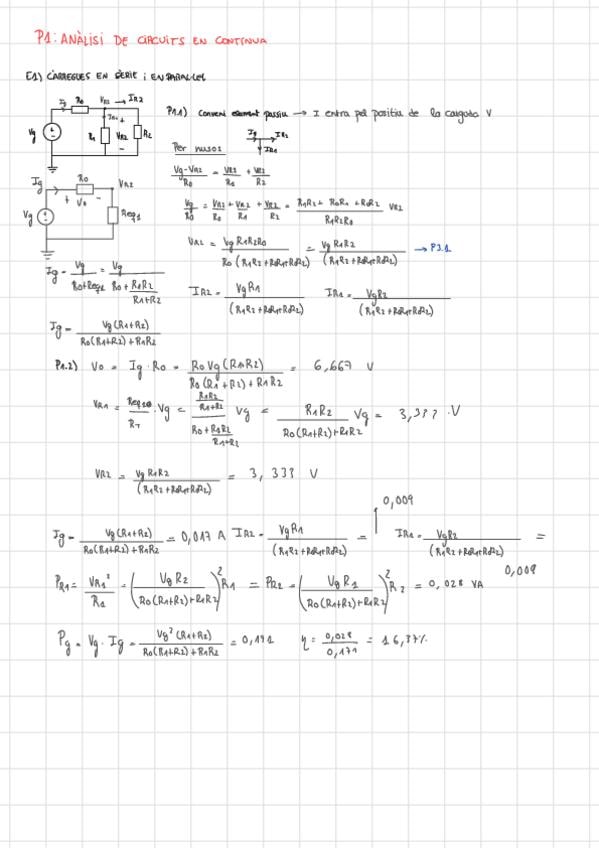 P1: ANÀLISI DE CIRCUITS EN CONTINUA
E1) CÀRREGUES EN SÈRIE i EN PARAL·LEL
Ig R0 VR2 → IR2
Vg IR1 + R1 VR2 R2 −
P1.1) Conveni element passiu → I entra pel positiu de la caiguda V
Ig IR2
IR1
Per nusos
Ig R0 VR2
+ V0 −
Vg Req1
(Vg-VR2)/R0 = VR2/R1 + VR2/R2
Vg/R0 = VR2/R0 + VR2/R1 + VR2/R2 = (R1R2 + R0R1 + R0R2)/(R1R2R0) VR2
VR2 = Vg R1R2R0/(R0 (R1R2+R0R1+R0R2)) = Vg R1R2/(R1R2+R0R1+R0R2) → P3.1
Ig = Vg/(R0+Req1) = Vg/(R0 + R1R2/(R1+R2))
IR2 = Vg R1/(R1R2+R0R1+R0R2) IR1 = Vg R2/(R1R2+R0R1+R0R2)
Ig = Vg(R1+R2)/(R0(R1+R2)+R1R2)
P1.2) V0 = Ig · R0 = R0 Vg (R1R2)/(R0(R1+R2)+R1R2) = 6,667 V
VR1 = /RT · Vg = (R1R2/(R1+R2))/(R0+R1R2/(R1+R2)) Vg = R1R2/(R0(R1+R2)+R1R2) Vg = 3,333 V
VR2 = Vg R1R2/(R1R2+R0R1+R0R2) = 3,333 V
0,009
Ig = Vg(R1+R2)/(R0(R1+R2)+R1R2) = 0,017 A IR2 = Vg R1/(R1R2+R0R1+R0R2) = IR1 = Vg R2/(R1R2+R0R1+R0R2) =
0,009
PR1 = VR1²/R1 = (Vg R2/(R0(R1+R2)+R1R2))² R1 = PR2 = (Vg R1/(R0(R1+R2)+R1R2))² R2 = 0,028 VA
Pg = Vg · Ig = Vg² (R1+R2)/(R0(R1+R2)+R1R2) = 0,171 η = 0,028/0,171 = 16,37%